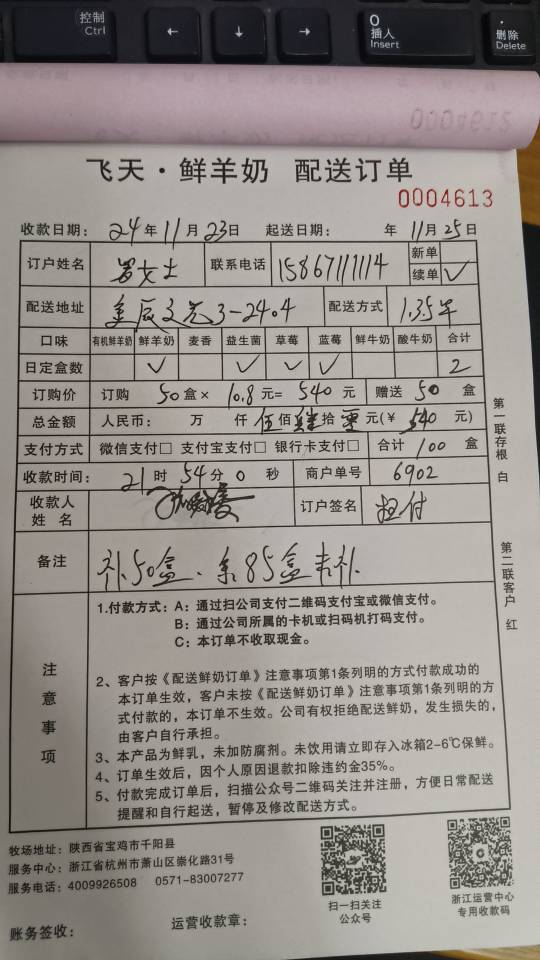 控制
Ctrl
←
↓
→
0
插入
Insert
.
删除
Delete
0004612
飞天·鲜羊奶 配送订单
0004613
收款日期: 24年11月23日 起送日期: 年11月25日
订户姓名 女士 联系电话 15867111114 新单
续单 ✓
配送地址 3-2404 配送方式 1.3.5.
口味 有机鲜羊奶 鲜羊奶 麦香 益生菌 草莓 蓝莓 鲜牛奶 酸牛奶 合计
日定盒数 ✓ ✓ ✓ ✓ 2
订购价 订购 50盒× 10.8元= 540元 赠送 50 盒
总金额 人民币: 万 仟 伍佰肆拾零元(¥ 540 元)
支付方式 微信支付□ 支付宝支付□ 银行卡支付□ 合计 100 盒
收款时间: 21时 54分 0 秒 商户单号 6902
收款人
姓 名
订户签名 付
备注 补50盒、余85盒未补
注意事项
1.付款方式: A: 通过扫公司支付二维码支付宝或微信支付。
B: 通过公司所属的卡机或扫码机打码支付。
C: 本订单不收取现金。
2、客户按《配送鲜奶订单》注意事项第1条列明的方式付款成功的
本订单生效,客户未按《配送鲜奶订单》注意事项第1条列明的方
式付款的,本订单不生效。公司有权拒绝配送鲜奶,发生损失的,
由客户自行承担。
3、本产品为鲜乳,未加防腐剂。未饮用请立即存入冰箱2-6℃保鲜。
4、订单生效后,因个人原因退款扣除违约金35%。
5、付款完成订单后,扫描公众号二维码关注并注册,方便日常配送
提醒和自行起送,暂停及修改配送方式。
第一联存根 白
第二联客户 红
牧场地址: 陕西省宝鸡市千阳县
服务中心: 浙江省杭州市萧山区崇化路31号
服务电话: 4009926508 0571-83007277
扫一扫关注
公众号
浙江运营中心
专用收款码
账务签收: 运营收款章: